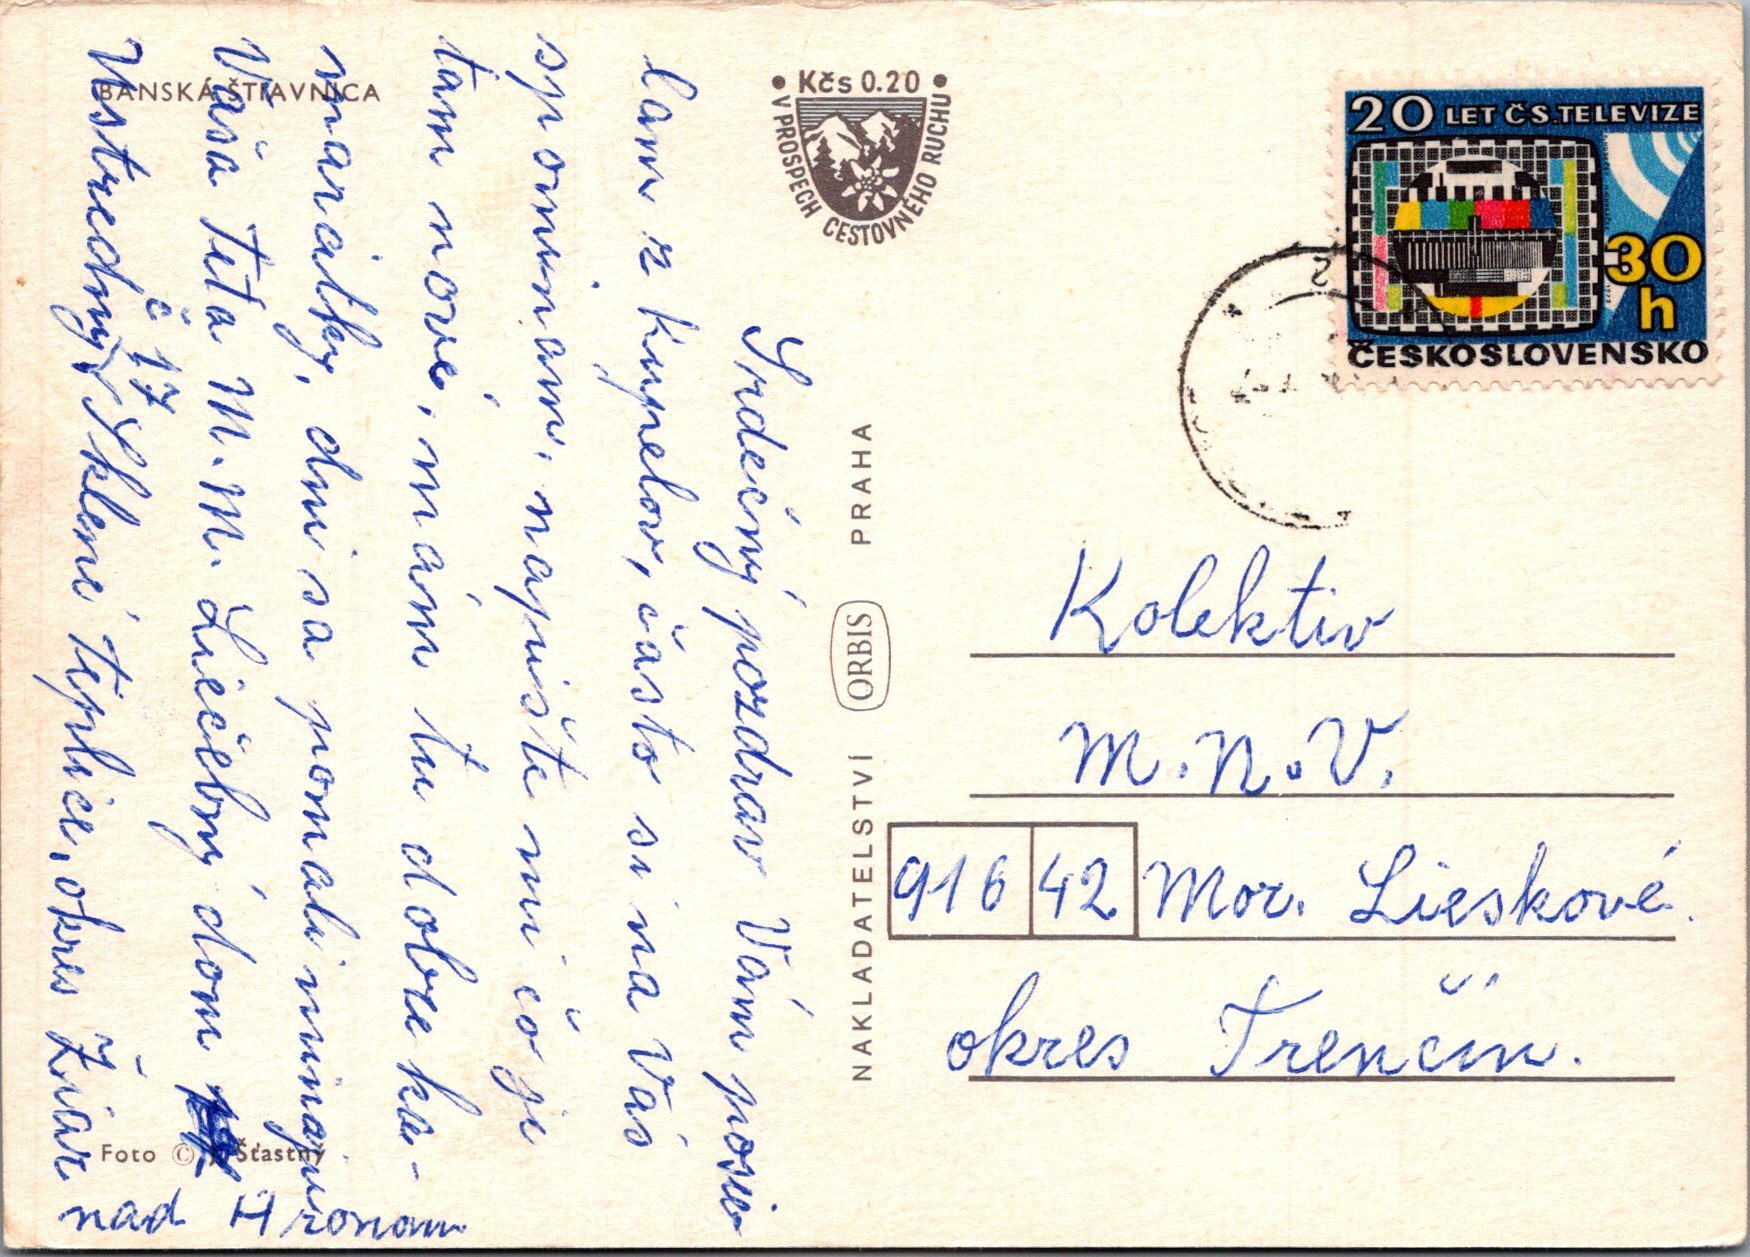 BANSKÁ ŠTIAVNICA
Kčs 0.20
V PROSPECH CESTOVNÉHO RUCHU
20 LET ČS. TELEVIZE
30
h
ČESKOSLOVENSKO
Srdečný pozdrav Vám posie
lam z Kupelov, často si na Vás
spominam, napište mi čo je
tam nové, mám tu dobre ka-
maratky, dni sa pomali minaju
Vaša Teta M. M. Liečebný dom
Ustredny č 17 Sklené teplice, okres Žiar
nad Hronom
NAKLADATELSTVÍ ORBIS PRAHA
Kolektiv
M. N. V.
916 42 Mor. Lieskové.
okres Trenčín.
Foto © Šťastný